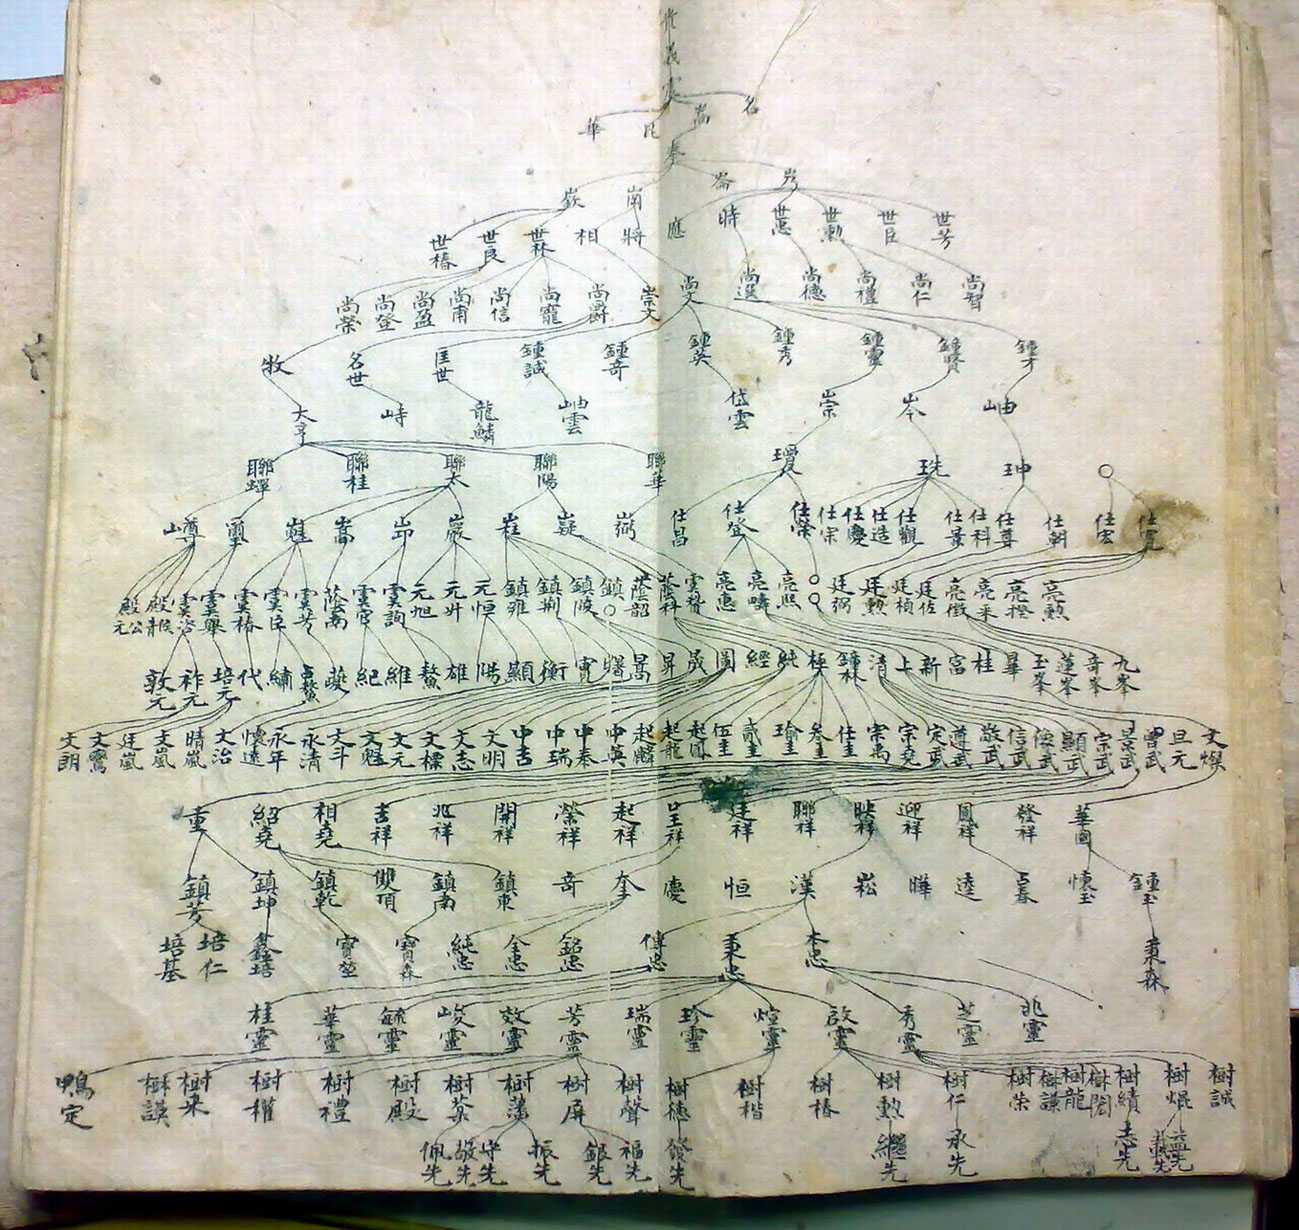 華 嵩 名
欽 崗 崙
世椿 世良 世林 相 將 應 時 世惠 世勲 世臣 世芳
尚榮 尚登 尚盈 尚甫 尚信 尚寵 尚爵 崇文 尚文 尚選 尚德 尚禮 尚仁 尚智
牧 名世 匡世 鍾誠 鍾奇 鍾英 鍾秀 鍾靈 鍾賢 鍾才
大亨 峙 龍鱗 岫雲 岱雲 崇 岑 岫
聯蟬 聯桂 聯太 聯陽 聯華 珗 珅
嵩 巖 嶷 仕昌 仕登 仕榮 仕宗 仕慶 仕造 仕觀 仕景 仕科 仕尊 仕朝 仕宏 仕寬
雲椿 雲臣 雲芳 雲官 雲詢 元旭 元升 元恒 鎮雍 鎮荆 鎮 蔭韶 蔭科 亮惠 亮疇 亮熙 廷弼 廷勲 廷楨 廷佐 亮徵 亮采 亮揆 亮勲
敦元 祚元 培元 代 繡 紀 維 鰲 雄 陽 顯 衡 寛 曙 昇 晟 圖 經 純 極 鍾林 清 上 新 富 桂 畢 玉峯 蓮峯 奇峯 九峯
文朗 文鸞 廷嵐 文嵐 晴嵐 文治 懷遠 永年 永清 文斗 文魁 文元 文標 文志 文明 中吉 中瑞 中泰 中英 起麟 起龍 起鳳 伍圭 貳圭 瑜圭 叁圭 仕圭 宗禹 宗堯 定武 遵武 敬武 信武 俊武 顯武 宗武 景武 曾武 旦元 文燦
重 紹堯 相堯 吉祥 兆祥 開祥 榮祥 起祥 呈祥 廷祥 聯祥 映祥 迎祥 鳳祥 發祥 華國
鎮芳 鎮坤 鎮乾 雙頂 鎮南 鎮東 奇 奎 慶 恒 漢 崧 曄 逵 春 懷玉 鍾玉
培基 培仁 鑫培 寶森 純忠 全忠 銘忠 傳忠 秉忠 本忠 秉森
桂靈 華靈 毓靈 峻靈 效靈 芳靈 瑞靈 珍靈 煊靈 啟靈 秀靈 芝靈 兆靈
鴨定 樹謨 樹來 樹權 樹禮 樹殿 樹棻 樹藩 樹屏 樹聲 樹德 樹楷 樹椿 樹勲 樹仁 樹荣 樹謙 樹龍 樹閎 樹績 樹焜 樹誠
佩先 敬先 守先 振先 銀先 福先 發先 繼先 承先 志先